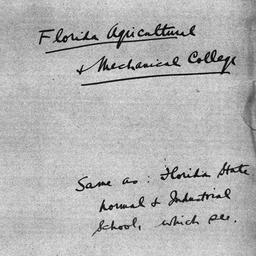 Florida Agricultural
& Mechanical College
Same as: Florida State
Normal & Industrial
School, which see.